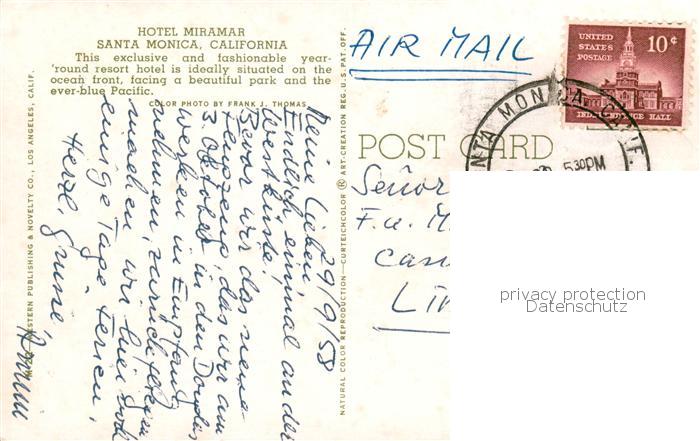 HOTEL MIRAMAR
SANTA MONICA, CALIFORNIA
This exclusive and fashionable year-
'round resort hotel is ideally situated on the
ocean front, facing a beautiful park and the
ever-blue Pacific.
COLOR PHOTO BY FRANK J. THOMAS
WESTERN PUBLISHING & NOVELTY CO., LOS ANGELES, CALIF.
29/9/58
Meine Lieben
Endlich einmal an der
Westküste.
Bevor wir das neue
Flugzeug, das wir am
3. Oktober in den Douglas
werken in Empfang
nehmen, zurückfliegen
machen wir hier
einige Tage Ferien.
Herzl. Grüsse,
NATURAL COLOR REPRODUCTION—CURTEICHCOLOR ® ART-CREATION REG. U.S. PAT. OFF.
AIR MAIL
UNITED STATES POSTAGE
10¢
INDEPENDENCE HALL
5 30 PM
POST CARD
Señor
F.a. M
Cas
LI
privacy protection
Datenschutz